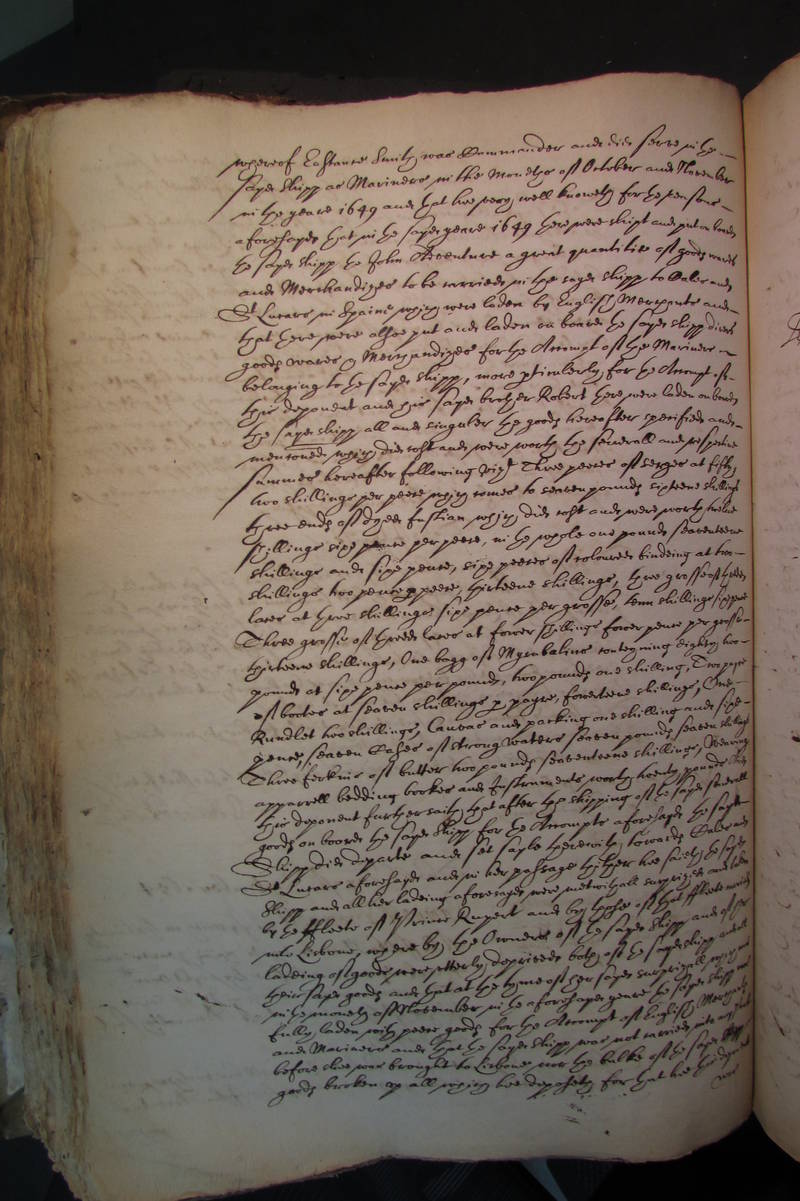 whereof Eustance Smith was Commander and did serve in the
sayd shipp as Mariners in the Moneths of October and November
in the yeare 1649 and that hee very well knoweth for the reasons
aforesayd that in the sayd yeare 1649 there were shipt and put on board
the sayd shipp the John Adventure a great quantitie of goods wares
and Merchandizes to be carried in the sayd shipp to Cales and
St Lucars in Spaine which were laden by English Merchants and
that there were alsoe put and laden on board the sayd shipp divers
goods wares & Merchandizes for the Accompt of the Mariners
belonging to the sayd shipp, more pticulerly for the Accompt of
this deponent and his sayd brother Robert there were laden on board
the sayd shipp all and singuler the goods hereafter specified and
mentioned which did cost and were worth the severall and respective
summes hereafter following vizt Three peeces of serges at fifty
two shillings per peece which comes to seaven pounds sixteene shillings
three ends of dyed fustian which did cost and were worth twelve
shillings six pence per peece, in the whole one pound seaventeene
shillings and six pence, six peeces of coloured bindeing at two
shillings two pence p peece, thirteene shillings, three grosse of threden
laces at three shillings six pence per grosse, tenn shillings six pence
Three grosse of threed laces at fower shillings fower pence per grosse
thirteene shillings, One bagg of Myrabalins conteyning eighty two
pounds at six pence per pound, two pounds one shilling, Two payre
of bootes at seaven shillings p payre, fowerteene shillings, One
Rundlet two shillings, Canvas and packing one shilling and six
pence, seaven Cases of strong waters seaven pounds seaven shillings
Three ferkins of butter two pounds seaventeene shillings, Wearing
apparrell bedding bookes and Instruments worth twenty pounds And
this deponent further saith that after the shipping of the sayd severall
goods on board the sayd shipp for the Accompts aforesayd the sayd
Shipp did departe and set sayle therewith towards Cales and
St Lucars aforesayd and in her passage thither hee saith the sayd
shipp and all her ladeing aforesayd were met withall surprized and taken
by the ffleete of Prince Rupert and by those of that ffleete carried
into Lisbone, whereby the Owners of the sayd shipp and of the
ladeing of goods were utterly deprived both of the sayd shipp and all
their sayd goods and that at the tyme of her sayd surprizall which was
in the moneth of November in the aforesayd yeare the sayd shipp was
fully laden with peece goods for the Accompt of English Merchants
and Mariners and that the sayd shipp was not carried into any
before shee was brought to Lisbone nor the bulke of the sayd
goods broken up all which hee deposeth for that hee this deponent
was